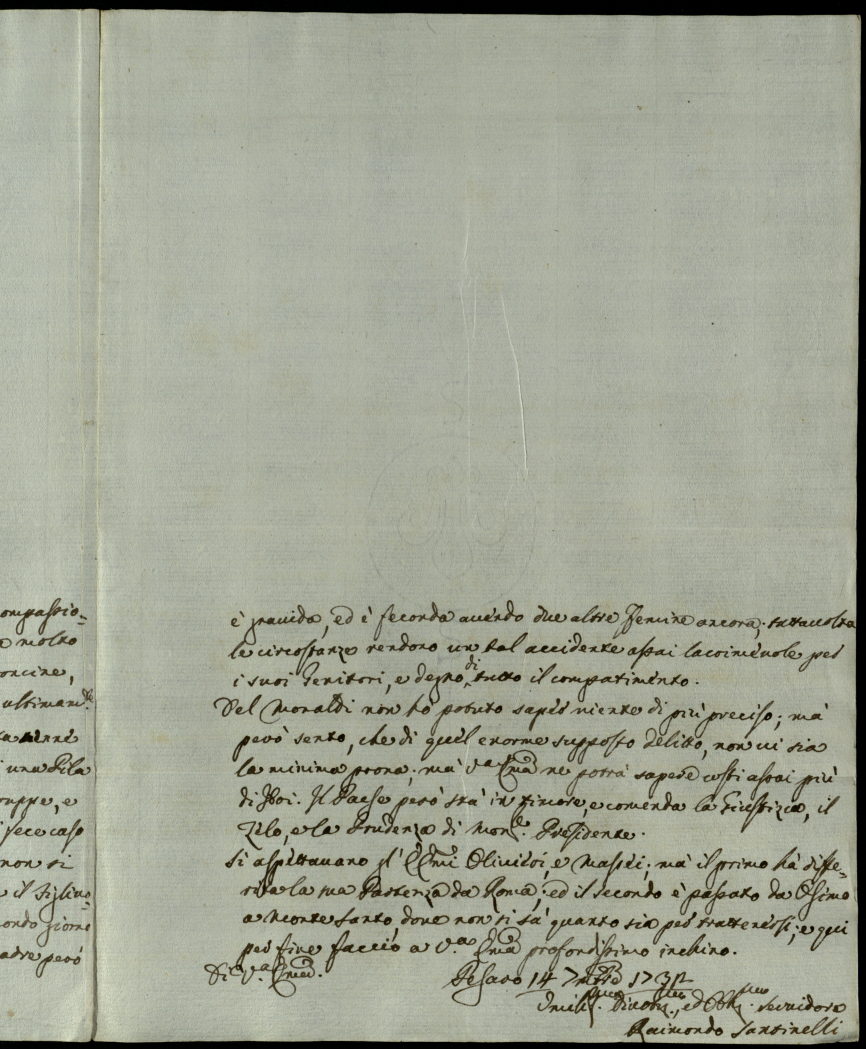 ompassio=
a molto
oncine,
ultimam.te
ta venne
i una Pila
ruppe, e
i fece caso
non si
e il Figlino=
ondo giorno
adre però
è gravida, ed è feconda avendo due altre Femine ancora; tuttavolta
le circostanze rendono un tal accidente assai lacrimevole per
i suoi Genitori, e degno di tutto il compatimento.
Del Monaldi non hò potuto saper niente di più preciso; mà
però sento, che di quel enorme supposto delitto, non vi sia
la minima prova; mà V.a Em̃a ne potrà sapere costì assai più
di Noi. Il Paese però stà in timore, e comenda la Giustizia, il
Zelo, e la Prudenza di Mon.r Presidente.
Si aspettavano gl' Em̃i Olivieri, e Massei; mà il primo hà diffe=
rita la sua Partenza da Roma; ed il secondo è passato da Osimo
a Monte Santo, dove non si sà quanto sia per trattenersi; e qui
per fine faccio a V.a Em̃a profondissimo inchino.
Di V.a Em̃a.
Pesaro 14 7mbre 173
Umil.mo Divot.mo, ed Obb.mo Servidore
Raimondo Santinelli